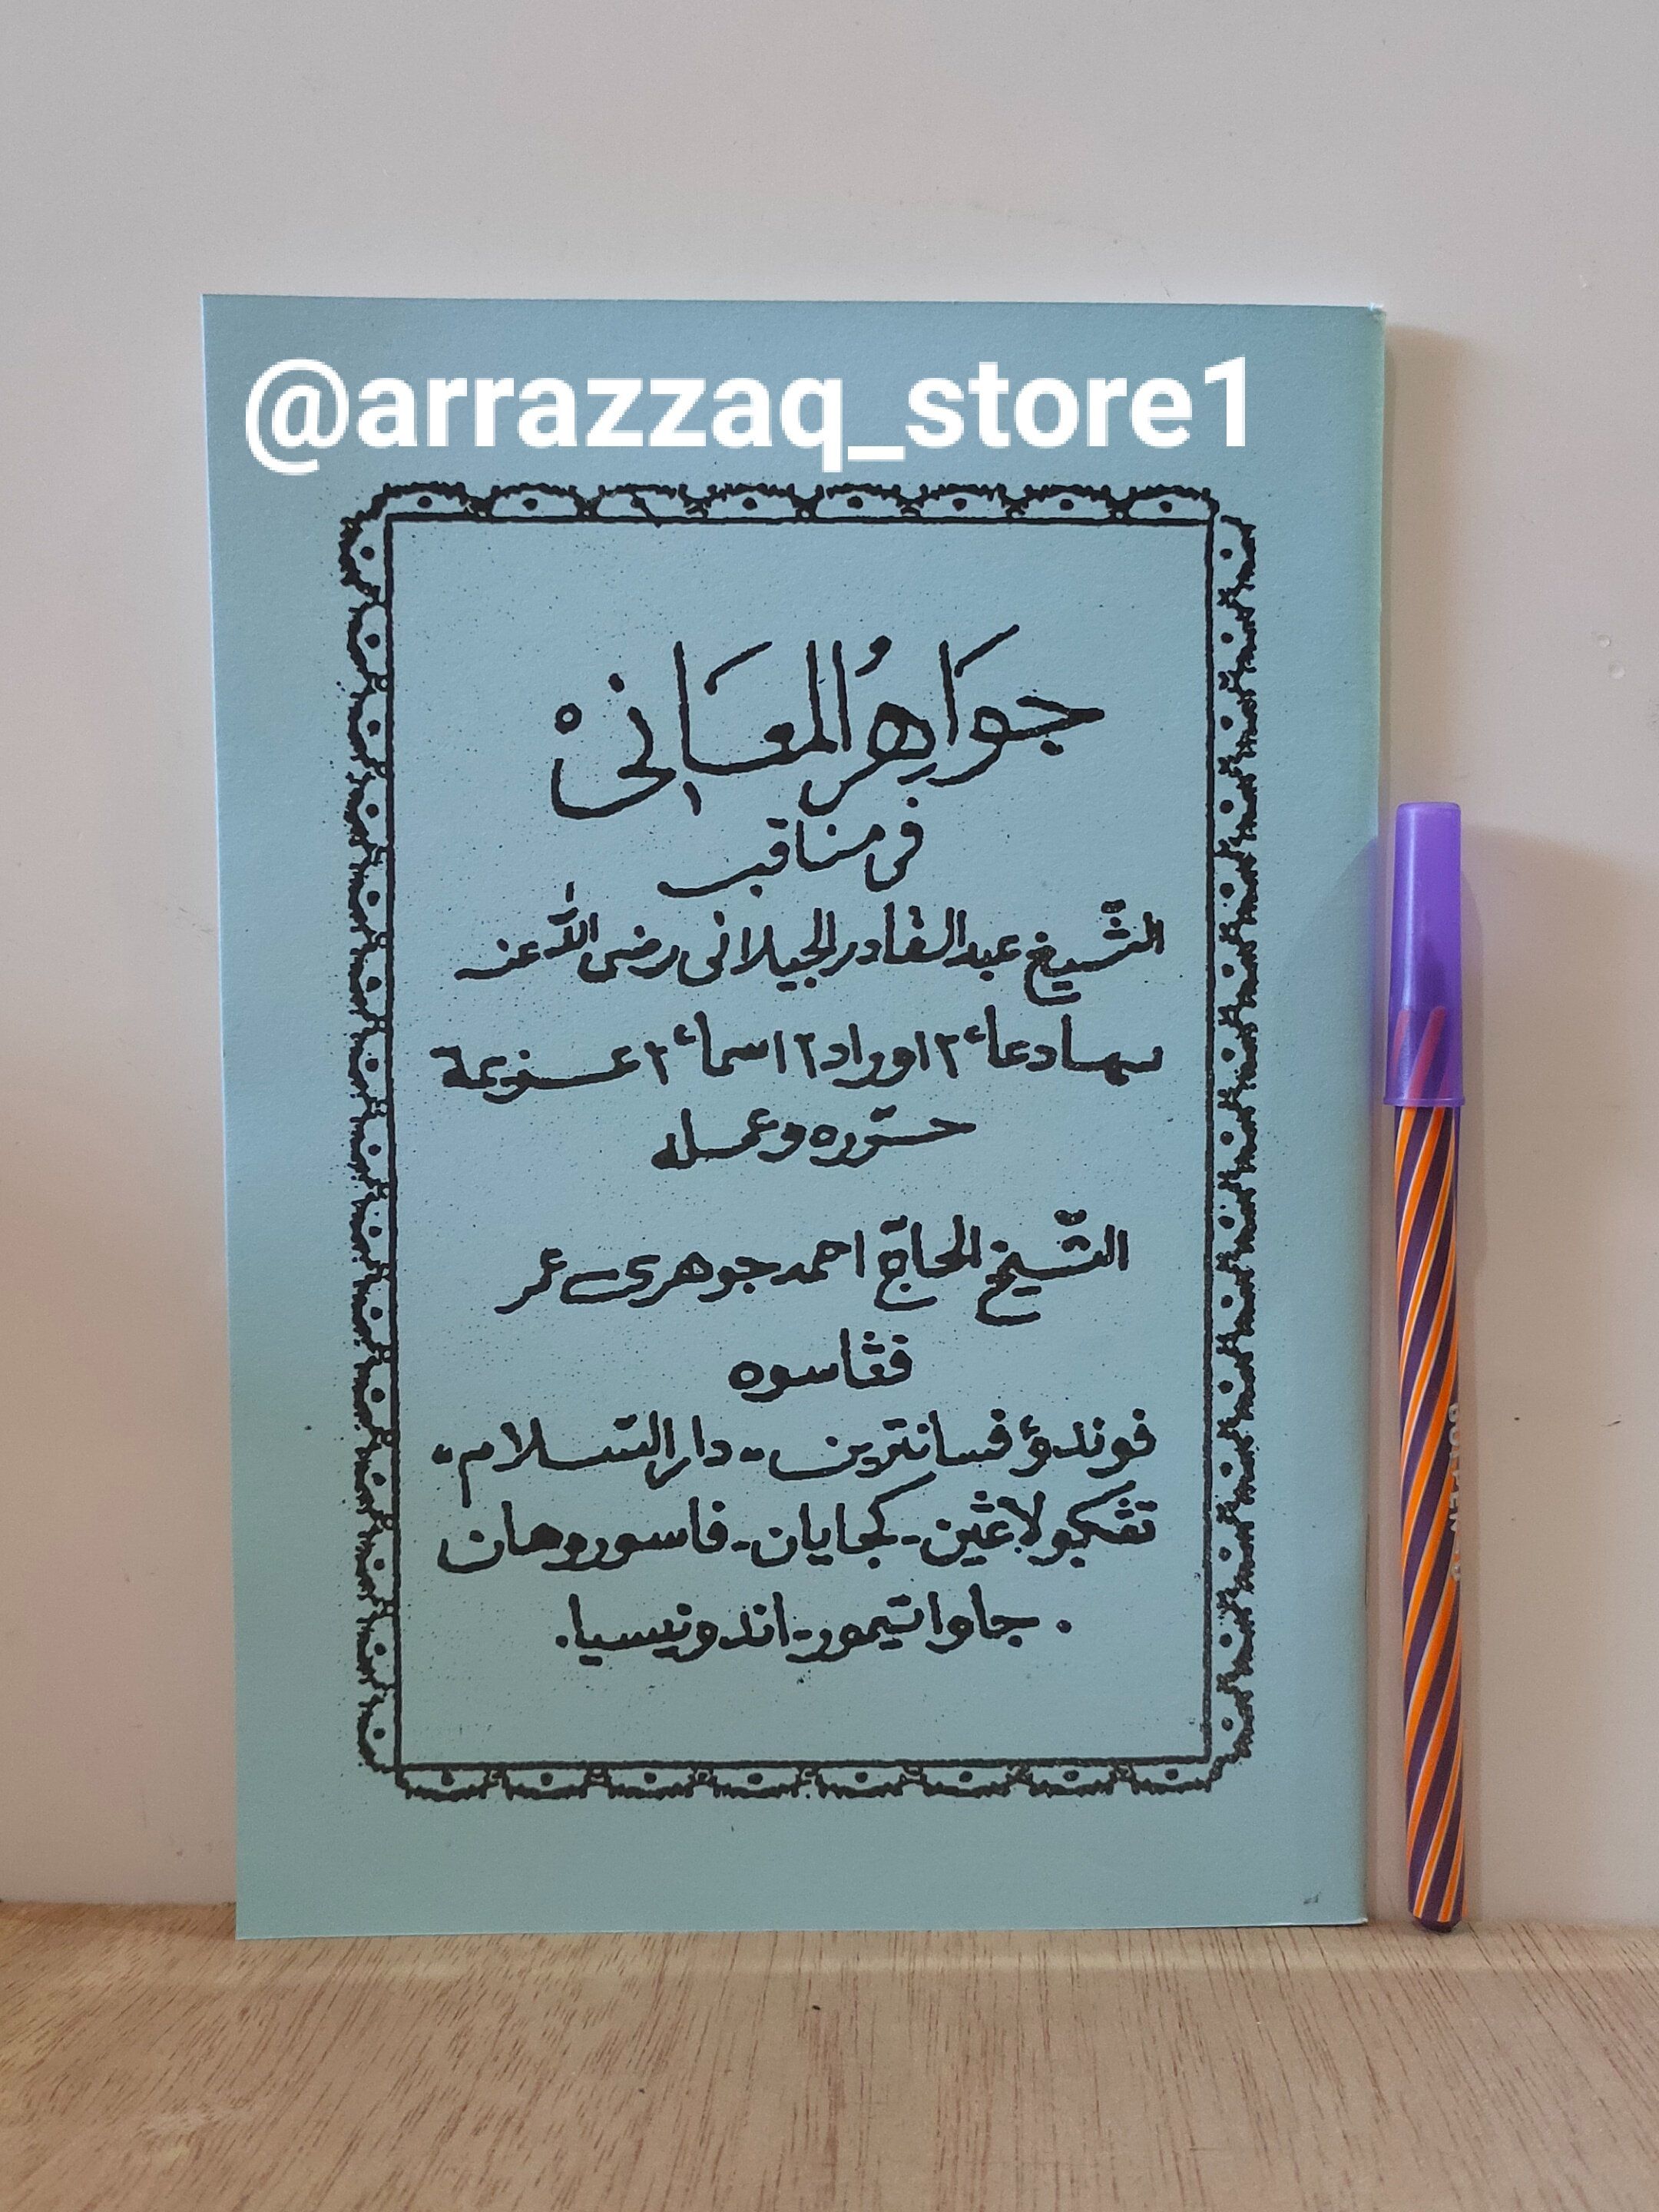 @arrazzaq_store1
جَوَاهِرُ الْمَعَانِىْ
فى مناقب
الشّيخ عبد القادر الجيلانى رضى اللّٰه عنه
دعاء٢ اوراد٢ اسماء٢ عزيمة
حتّره وعمله
الشّيخ الحاجّ احمد جوهرى عمر
ڤڠاسوه
فوندوء فسانترين - دار السّلام -
تڠكولاڠين - كجايان - فاسوروهان
. جاوا تيمور - اندونيسيا .